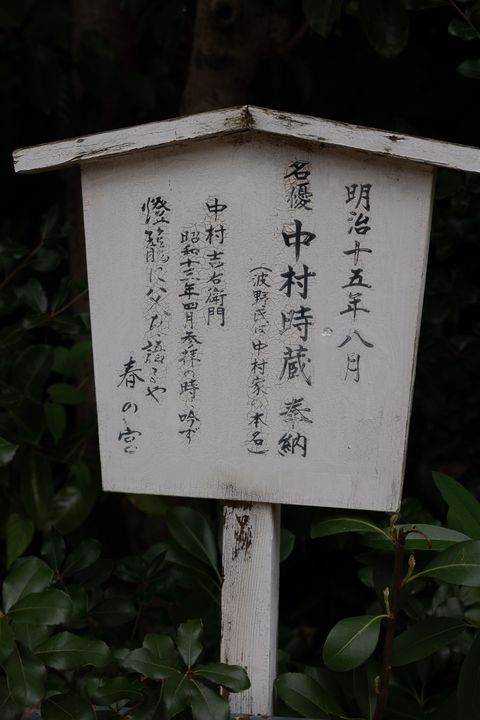 明治十五年八月
名優 中村時蔵 奉納
(波野氏は中村家の本名)
中村吉右衛門
昭和十三年四月参拝の時吟ず
燈籠に父が語るや
春の宮